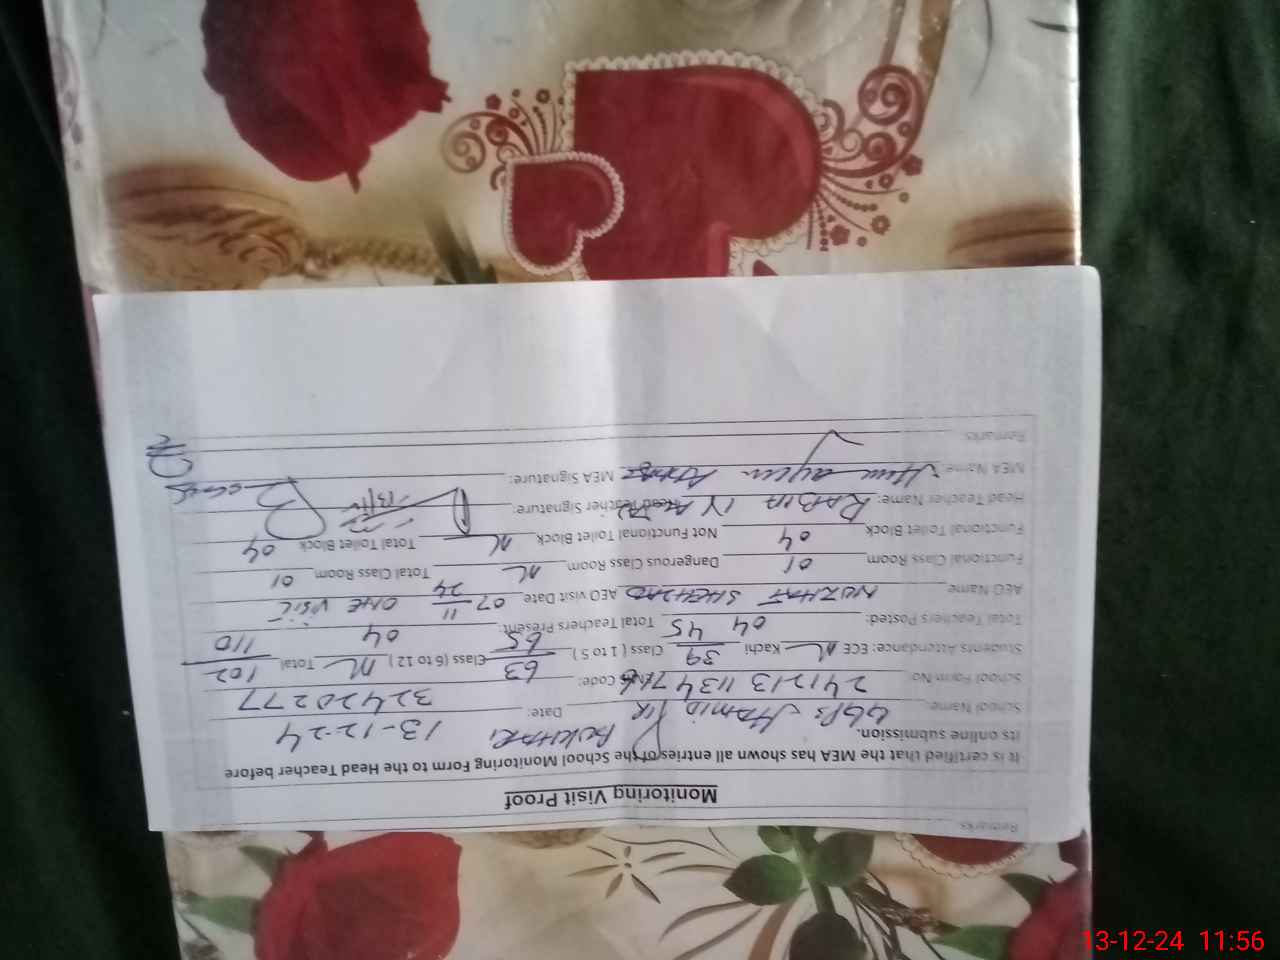 Remarks
Monitoring Visit Proof
It is certified that the MEA has shown all entries of the School Monitoring Form to the Head Teacher before
its online submission.
School Name: GGPS Hamid Pir BUKHARI Date: 13-12-24
School Form No: Code: 32420277
Students Attendance: ECE Kachi 39 45 Class (1 to 5) 63 65 Class (6 to 12) Total 102 110
Total Teachers Posted: 04 Total Teachers Present: 04
AEO Name NUZHAT SHEHZAD AEO visit Date 07-11-24 ONE VISIT
Functional Class Room 01 Dangerous Class Room Total Class Room 01
Functional Toilet Block 04 Not Functional Toilet Block Total Toilet Block 04
Head Teacher Name: RABIA Head Teacher Signature:
MEA Name MEA Signature:
Remarks
13-12-24 11:56